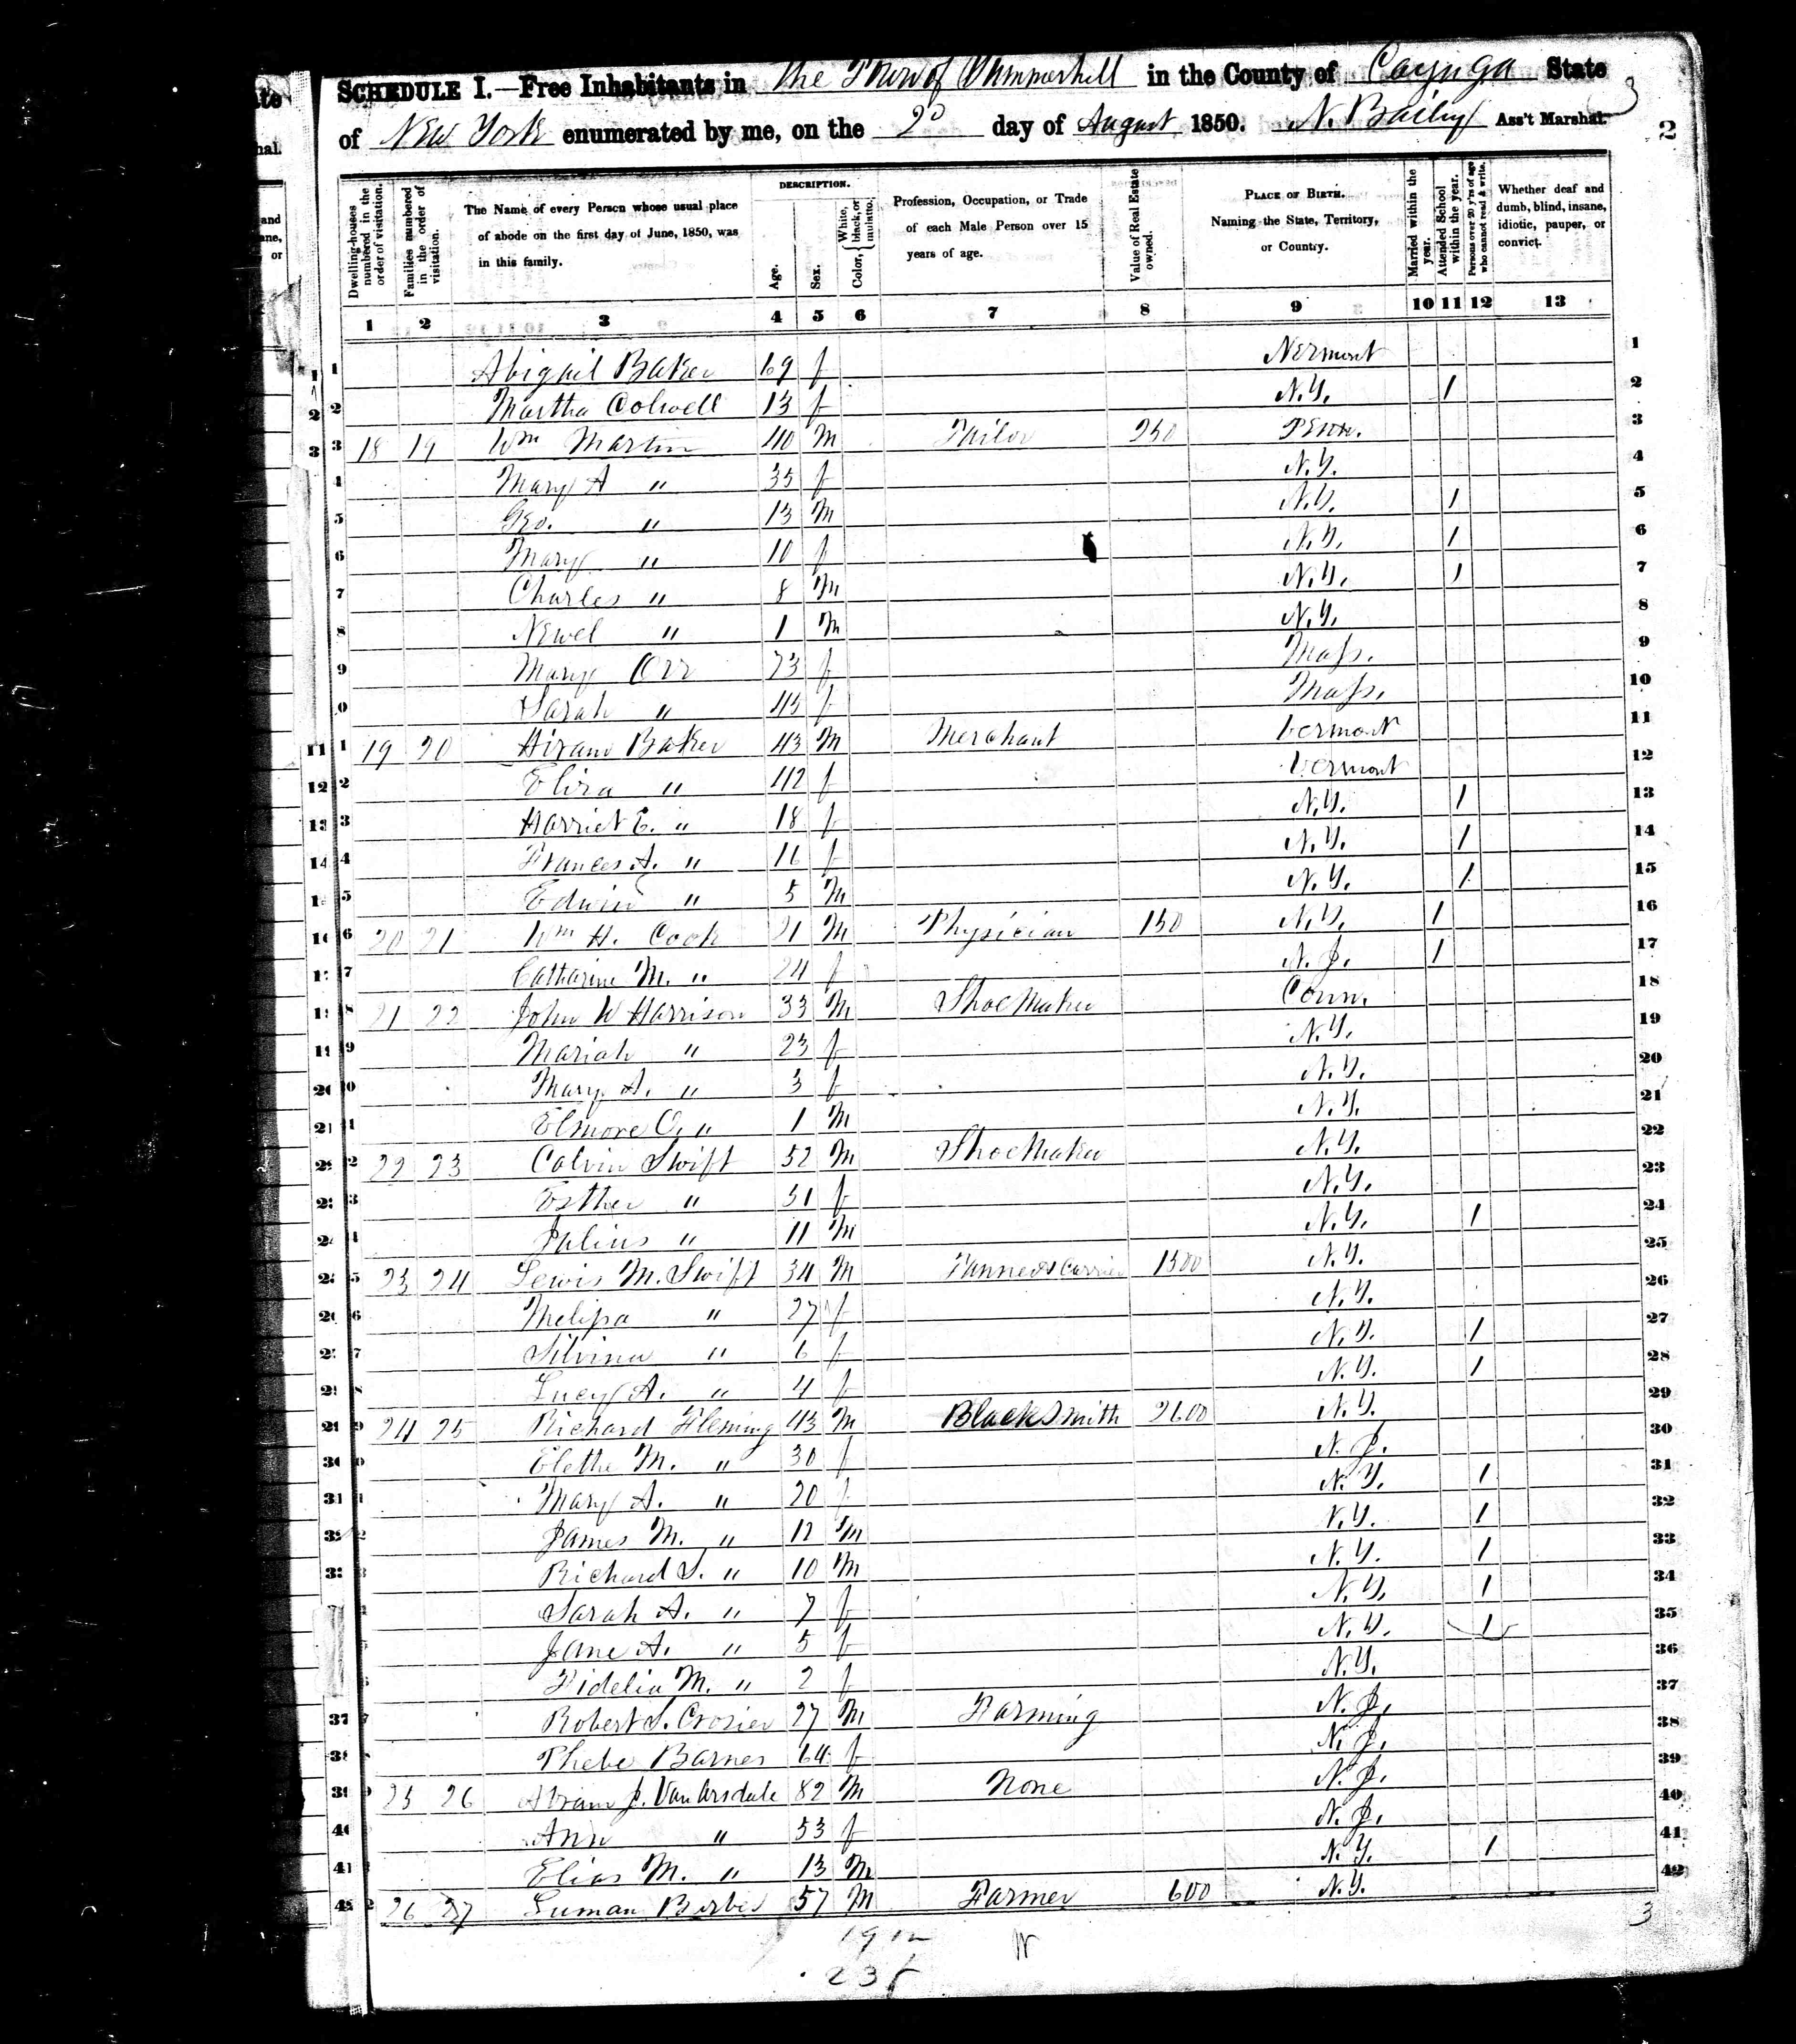 SCHEDULE I.—Free Inhabitants in The Town of Summerhill in the County of Cayuga State
of New York enumerated by me, on the 2d day of August 1850. N. Baily Ass't Marshal. 3
2
Dwelling-houses numbered in the order of visitation. Families numbered in the order of visitation. The Name of every Person whose usual place of abode on the first day of June, 1850, was in this family. DESCRIPTION. Age. Sex. Color, { White, black, or mulatto. Profession, Occupation, or Trade of each Male Person over 15 years of age. Value of Real Estate owned. PLACE OF BIRTH. Naming the State, Territory, or Country. Married within the year. Attended School within the year. Persons over 20 y'rs of age who cannot read & write. Whether deaf and dumb, blind, insane, idiotic, pauper, or convict.
1 2 3 4 5 6 7 8 9 10 11 12 13
1 Abigail Baker 69 f Vermont 1
2 Martha Colwell 13 f N.Y. 1 2
3 18 19 Wm Martin 40 M Tailor 250 Penn. 3
Mary A " 35 f N.Y. 4
5 Geo. " 13 M N.Y. 1 5
6 Mary " 10 f N.Y. 1 6
7 Charles " 8 M N.Y. 1 7
8 Newel " 1 M N.Y. 8
9 Mary Orr 73 f Mass. 9
0 Sarah " 45 f Mass. 10
11 19 20 Hiram Baker 43 M Merchant Vermont 11
12 Eliza " 42 f Vermont 12
13 Harriet E. " 18 f N.Y. 1 13
14 Frances A. " 16 f N.Y. 1 14
15 Edwin " 5 M N.Y. 1 15
16 20 21 Wm H. Cook 21 M Physician 150 N.Y. 1 16
17 Catharine M. " 24 f N.J. 1 17
18 21 22 John W Harrison 33 M Shoe Maker Conn. 18
19 Mariah " 23 f N.Y. 19
20 Mary A. " 3 f N.Y. 20
21 Elmore O. " 1 M N.Y. 21
22 22 23 Calvin Swift 52 M Shoe Maker N.Y. 22
23 Esther " 51 f N.Y. 23
24 Julius " 11 M N.Y. 1 24
25 23 24 Lewis M. Swift 34 M Tanner & Currier 1500 N.Y. 25
26 Melissa " 27 f N.Y. 26
27 Silvina " 6 f N.Y. 1 27
28 Lucy A. " 4 f N.Y. 1 28
29 24 25 Richard Fleming 43 M Black Smith 2600 N.Y. 29
30 Elethe M. " 30 f N.J. 30
31 Mary A. " 20 f N.Y. 1 31
32 James M. " 12 M N.Y. 1 32
33 Richard S. " 10 M N.Y. 1 33
Sarah A. " 7 f N.Y. 1 34
Jane A. " 5 f N.Y. 1 35
Fidelia M. " 2 f N.Y. 36
37 Robert S. Crosier 27 M Farming N.J. 37
38 Phebe Barnes 64 f N.J. 38
39 25 26 Abram J. Van Arsdale 82 M None N.J. 39
40 Ann " 53 f N.J. 40
41 Elias M. " 13 M N.Y. 1 41
42 26 27 Luman Barber 57 M Farmer 600 N.Y. 42
3
19 m
23 f